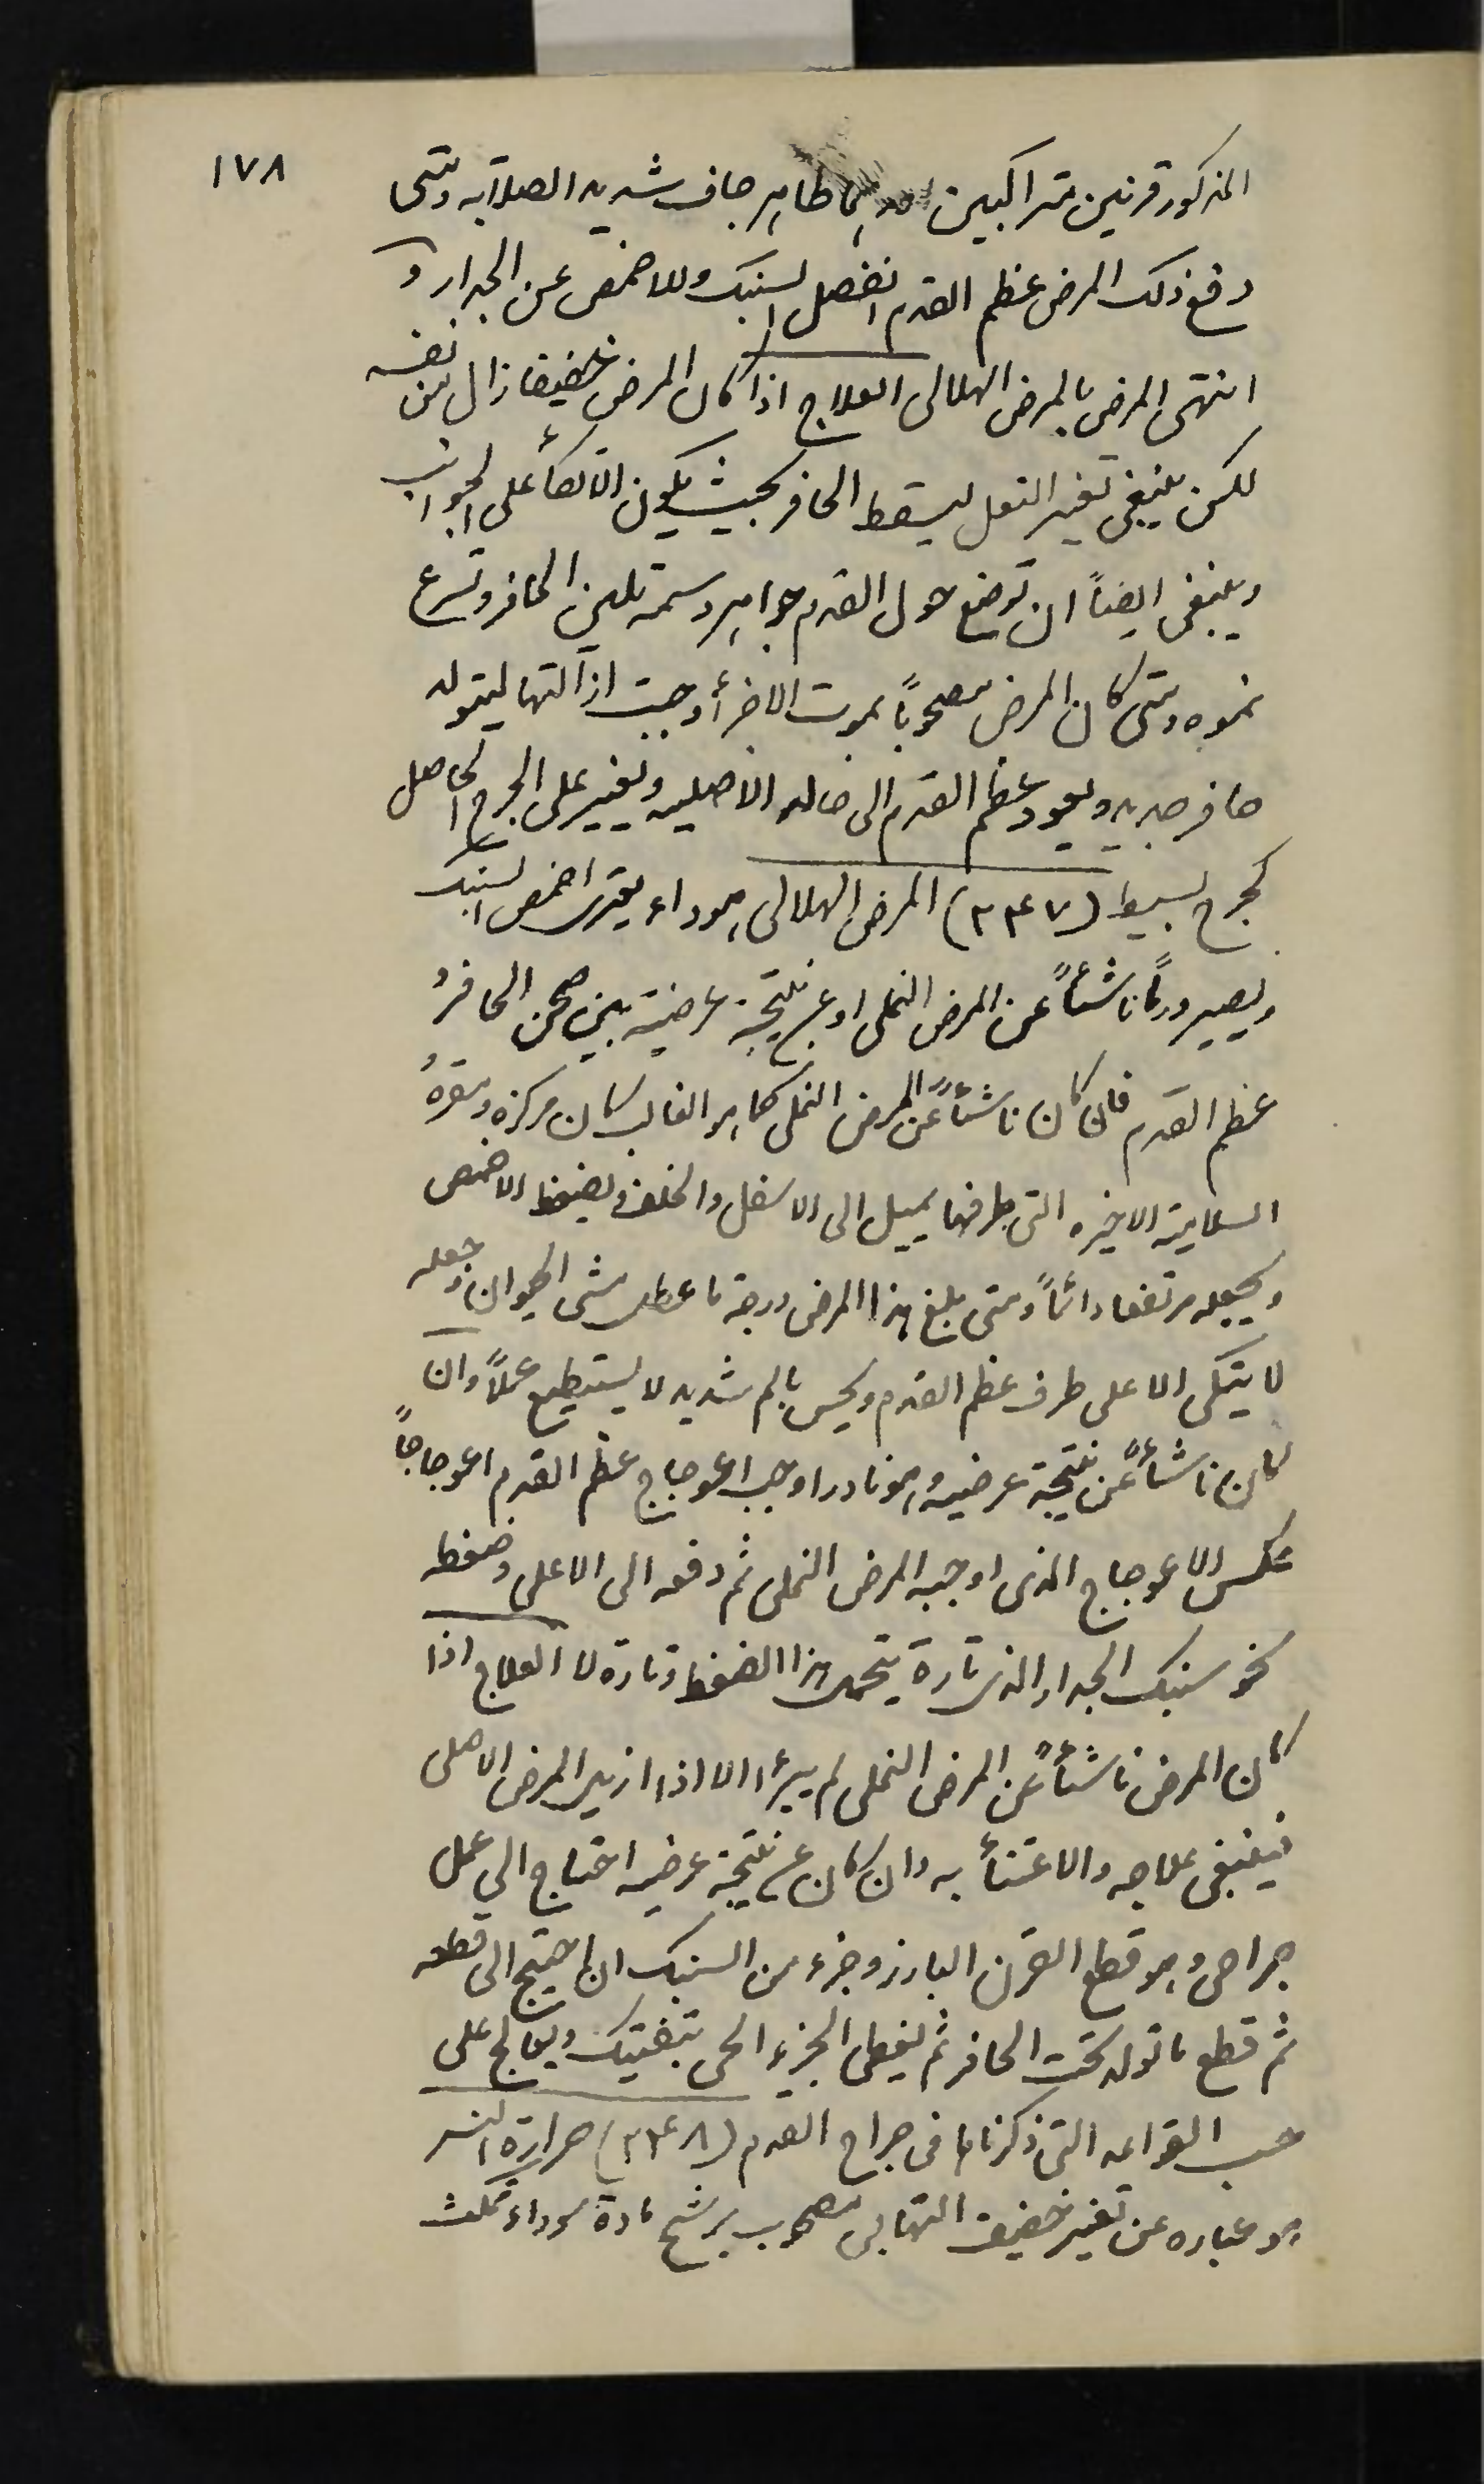 ١٧٨
المذكور قرنين متراكبين احدهما ظاهر جاف شديد الصلابه ومتى
دفع ذلك المرض عظم القدم انفصل السنبك والاخمص عن الجدار و
انتهى المرض بالمرض الهلالى العلاج اذا كان المرض خفيفا زال من نفسه
لكن ينبغى تغير النعل ليسقط الحافر بحيث يكون الاتكأ على الجوانب
وينبغى ايضاً ان توضع حول القدم جواهر دسمة تلين الحافر وتسرع
نموه ومتى كان المرض مصحوباً بموت الاجزأ وجبت ازالتها ليتولد
حافر جديد ويعود عظم القدم الى حاله الاصليه ويغير على الجرح الحاصل
كجرح بسيط (٢٣٤٧) المرض الهلالى هو داء يعترى اخمص السنبك
ويصير ورماً ناشئاً عن المرض النملى او عن نتيجة عرضية بين صحن الحافر و
عظم القدم فان كان ناشئاً عن المرض النملى كما هو الغالب كان مركزه ومقره
السلامية الاخيره التى طرفها يميل الى الاسفل والخلف ويضغط الاخمص
ويجعله مرتفعا دائماً ومتى بلغ هذا المرض درجة ما عطل مشى الحيوان وجعله
لا يتكى الا على طرف عظم القدم ويحس بالم شديد لا يستطيع عملاً وان
كان ناشئاً عن نتيجة عرضيه وهو نادر اوجب اعوجاج عظم القدم اعوجاجاً
عكس الاعوجاج الذى اوجبه المرض النملى ثم دفعه الى الاعلى وضغطه
نحو سنبك الجدار الذى تارة يتحمل هذا الضغط وتارة لا العلاج اذا
كان المرض ناشئاً عن المرض النملى لم يبرأ الا اذا ازيل المرض الاصلى
فينبغى علاجه والاعتنأ به وان كان عن نتيجة عرضيه احتاج الي عمل
جراحى وهو قطع القرن البارز وجزء من السنبك ان احتيج الى قطعه
ثم قطع ما تولد تحت الحافر ثم يغطى الجزء الحى بتفتيك ويعالج على
حسب القواعد التى ذكرناها فى جراح القدم (٢٣٤٨) حرارة النسر
هو عباره عن تغير خفيف التهابى مصحوب برشح مادة سوداء تمكث